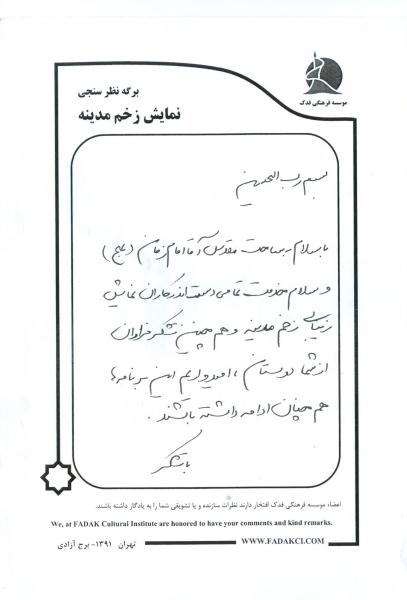 موسسه فرهنگی فدک
برگه نظر سنجی
نمایش زخم مدینه
بسم رب الحسین
با سلام به ساحت مقدس آقا امام زمان (عج)
و سلام خدمت تمامی دست اندرکاران نمایش
زیبای زخم مدینه و هم چنین تشکر فراوان
از شما دوستان، امیدواریم این برنامه ها
هم چنان ادامه داشته باشند.
با تشکر
اعضاء موسسه فرهنگی فدک افتخار دارند نظرات سازنده و یا تشویقی شما را به یادگار داشته باشند.
We, at FADAK Cultural Institute are honored to have your comments and kind remarks.
تهران ۱۳۹۱- برج آزادی
WWW.FADAKCI.COM